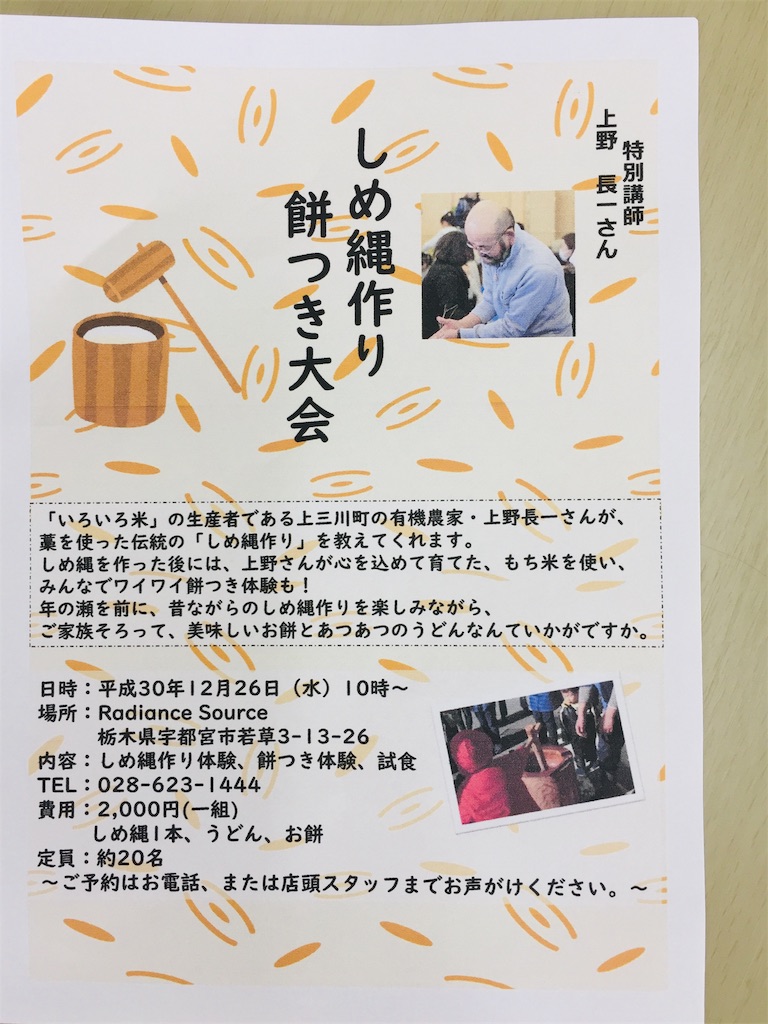 特別講師
上野 長一さん
しめ縄作り
餅つき大会
「いろいろ米」の生産者である上三川町の有機農家・上野長一さんが、
藁を使った伝統の「しめ縄作り」を教えてくれます。
しめ縄を作った後には、上野さんが心を込めて育てた、もち米を使い、
みんなでワイワイ餅つき体験も！
年の瀬を前に、昔ながらのしめ縄作りを楽しみながら、
ご家族そろって、美味しいお餅とあつあつのうどんなんていかがですか。
日時：平成30年12月26日（水）10時〜
場所：Radiance Source
栃木県宇都宮市若草3-13-26
内容：しめ縄作り体験、餅つき体験、試食
TEL：028-623-1444
費用：2,000円(一組)
しめ縄1本、うどん、お餅
定員：約20名
〜ご予約はお電話、または店頭スタッフまでお声がけください。〜